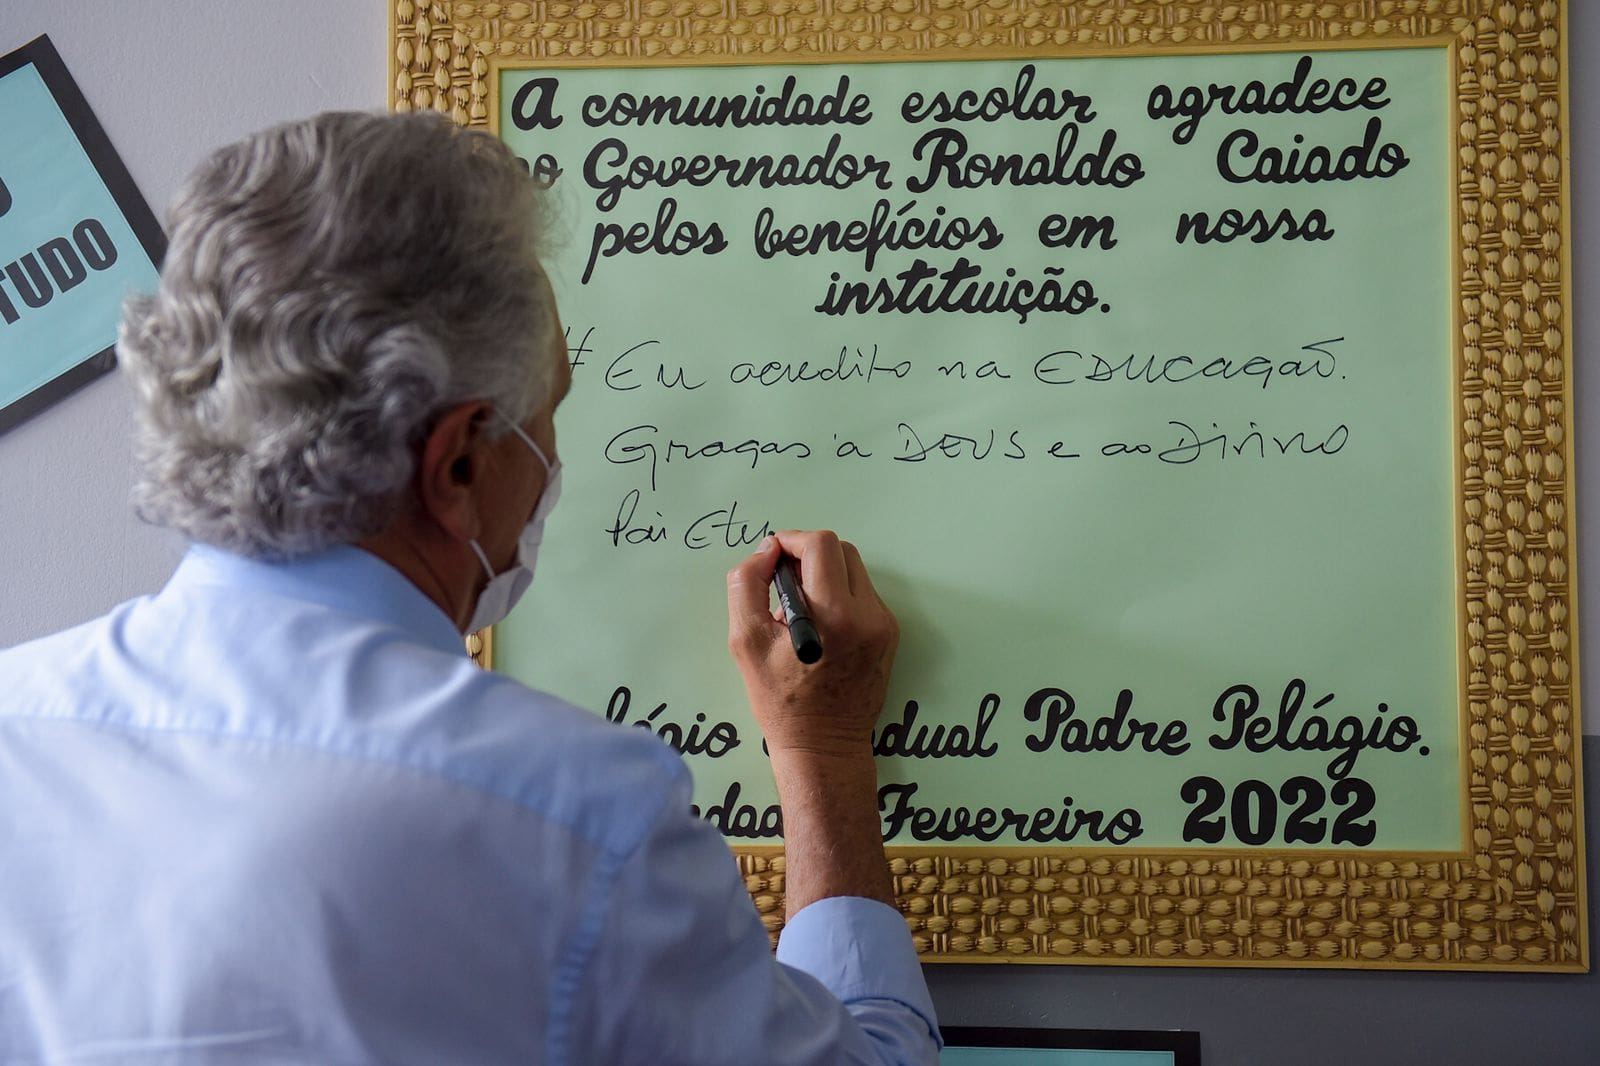 TUDO
A comunidade escolar agradece
ao Governador Ronaldo Caiado
pelos benefícios em nossa
instituição.
# Eu acredito na EDUCAÇÃO.
Graças a DEUS e ao Divino
Pai Ete
Estadual Padre Pelágio.
Fevereiro 2022